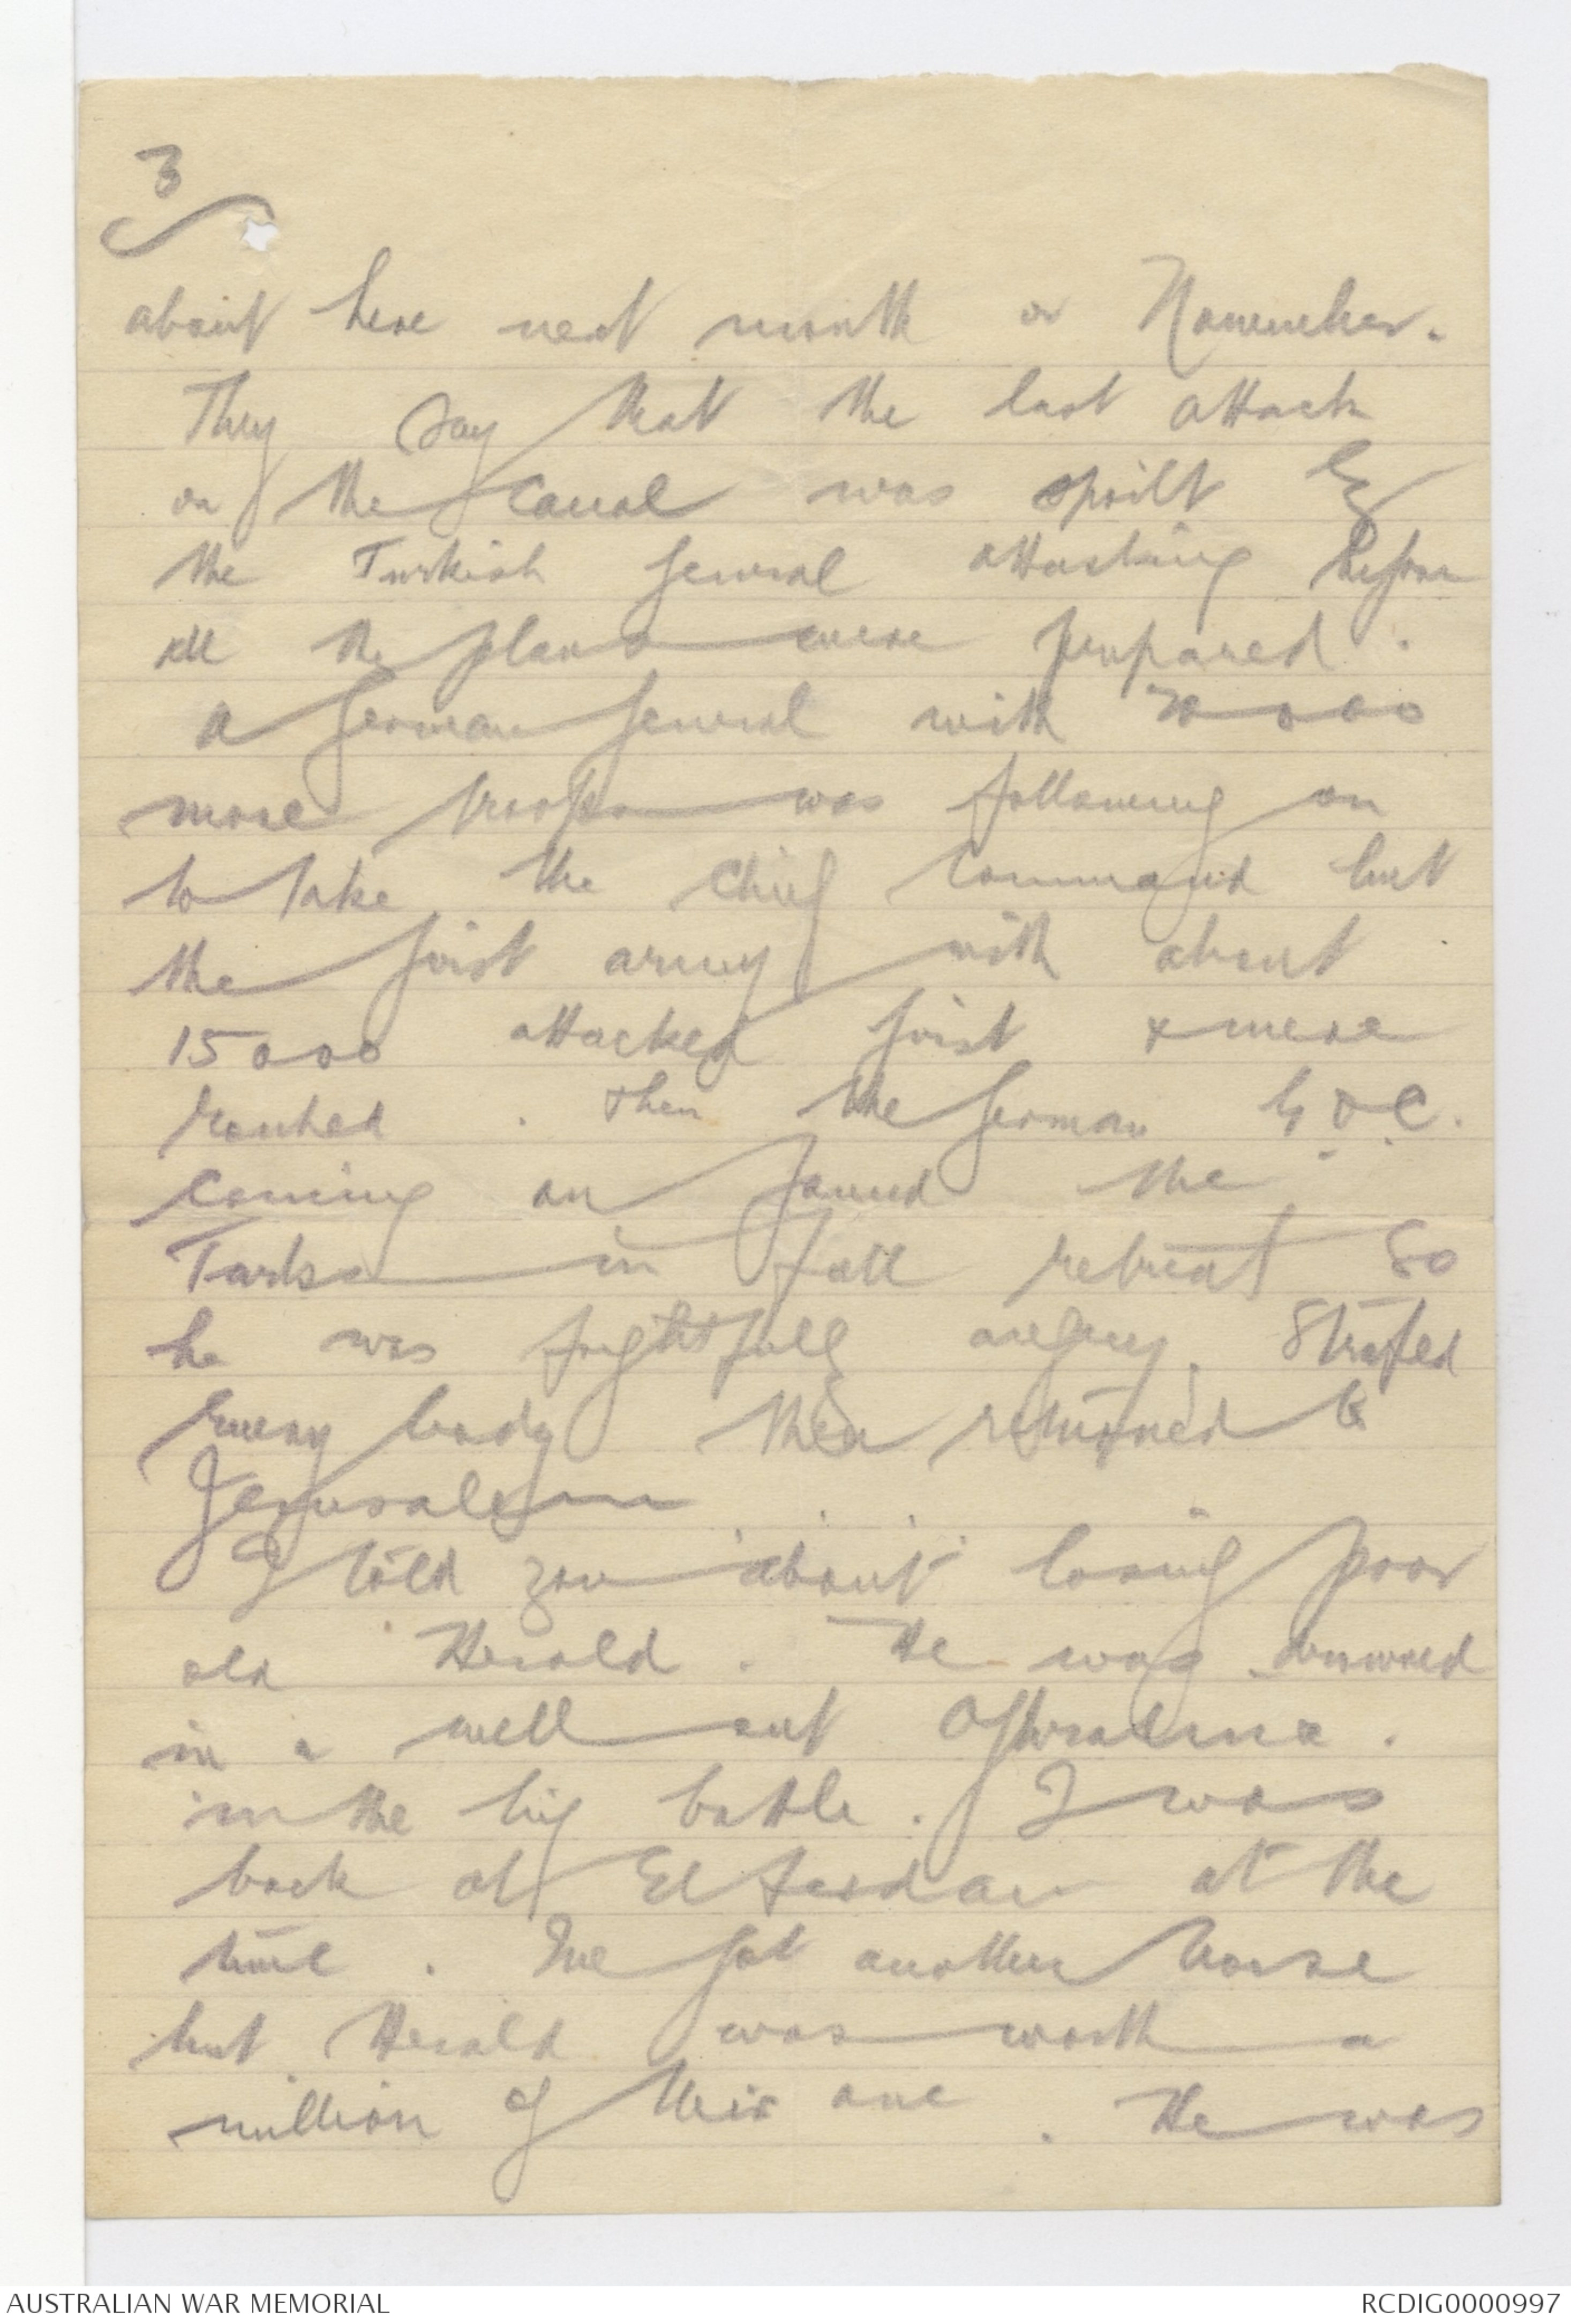 3
about here next month or November.
They say that the last attack
on the Canal was spoilt by
the Turkish General attacking before
all the plans were prepared.
A German General with 20000
more troops was following on
to take the chief command but
the first army with about
15000 attacked first & were
routed. Then the German G.O.C.
coming on found the
Turks in full retreat So
he was frightfully angry. Strafed
every body then returned to
Jerusalem
I told you about losing poor
old Herald. He was drowned
in a well out Oghratina.
in the big battle. I was
back at El Ferdan at the
time. Ive got another horse
but Herald was worth a
million of this one. He was
AUSTRALIAN WAR MEMORIAL
RCDIG0000997